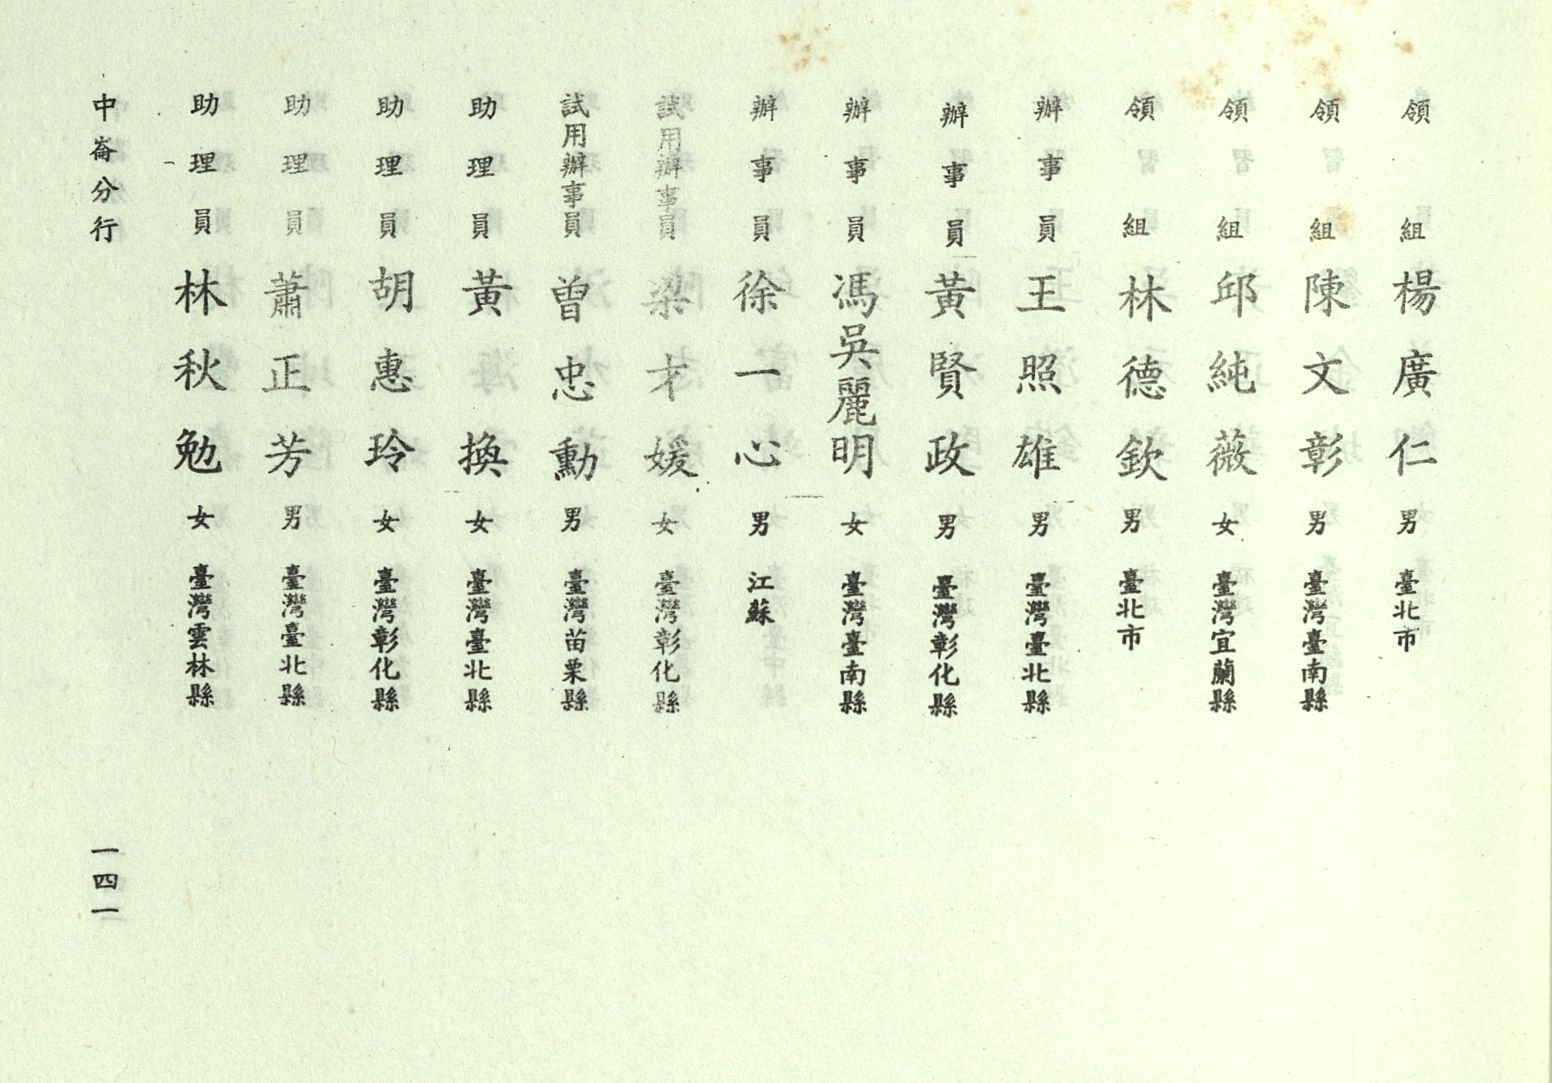 領組楊廣仁男臺北市
領組陳文彰男臺灣臺南縣
領組邱純薇女臺灣宜蘭縣
領組林德欽男臺北市
辦事員王照雄男臺灣臺北縣
辦事員黃賢政男臺灣彰化縣
辦事員馮吳麗明女臺灣臺南縣
辦事員徐一心男江蘇
試用辦事員梁才媛女臺灣彰化縣
試用辦事員曾忠勳男臺灣苗栗縣
助理員黃換女臺灣臺北縣
助理員胡惠玲女臺灣彰化縣
助理員蕭正芳男臺灣臺北縣
助理員林秋勉女臺灣雲林縣
中崙分行
一四一